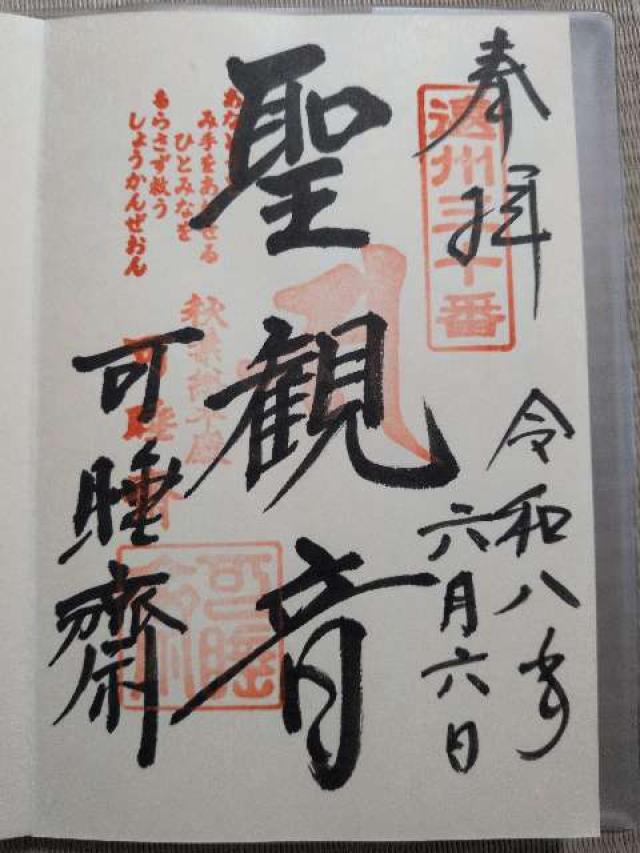 奉拝
遠州三十番
令和八年
六月六日
聖観音
み手をあわせる
ひとみなを
もらさず救う
しょうかんぜおん
秋葉総本殿
可睡斎
可睡齋